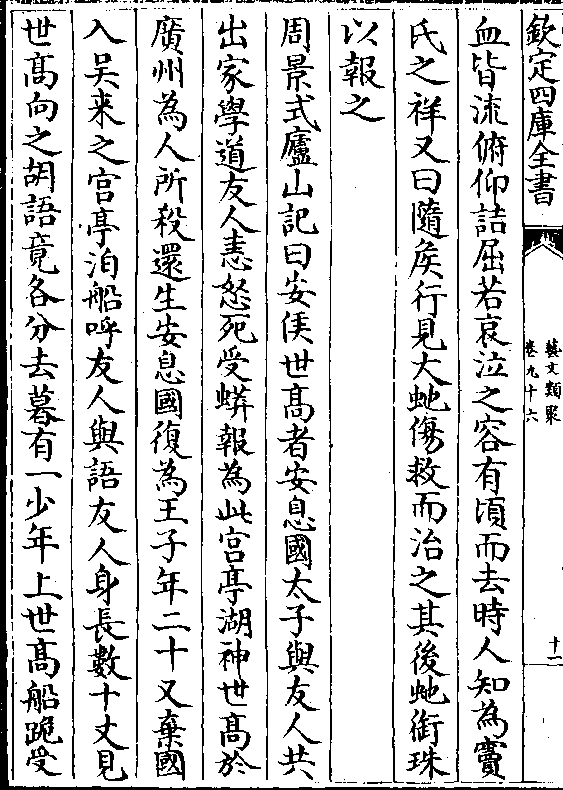 欽定四庫全書
藝文類聚
卷九十六
十一
血皆流俯仰詰屈若哀泣之容有頃而去時人知為竇
氏之祥又曰隨侯行見大虵傷救而治之其後虵銜珠
以報之
周景式廬山記曰安侯世髙者安息國太子與友人共
出家學道友人恚怒死受蟒報為此宫亭湖神世髙於
廣州為人所殺還生安息國復為王子年二十又棄國
入吳来之宫亭泊船呼友人與語友人身長數十丈見
世髙向之胡語竟各分去暮有一少年上世髙船跪受